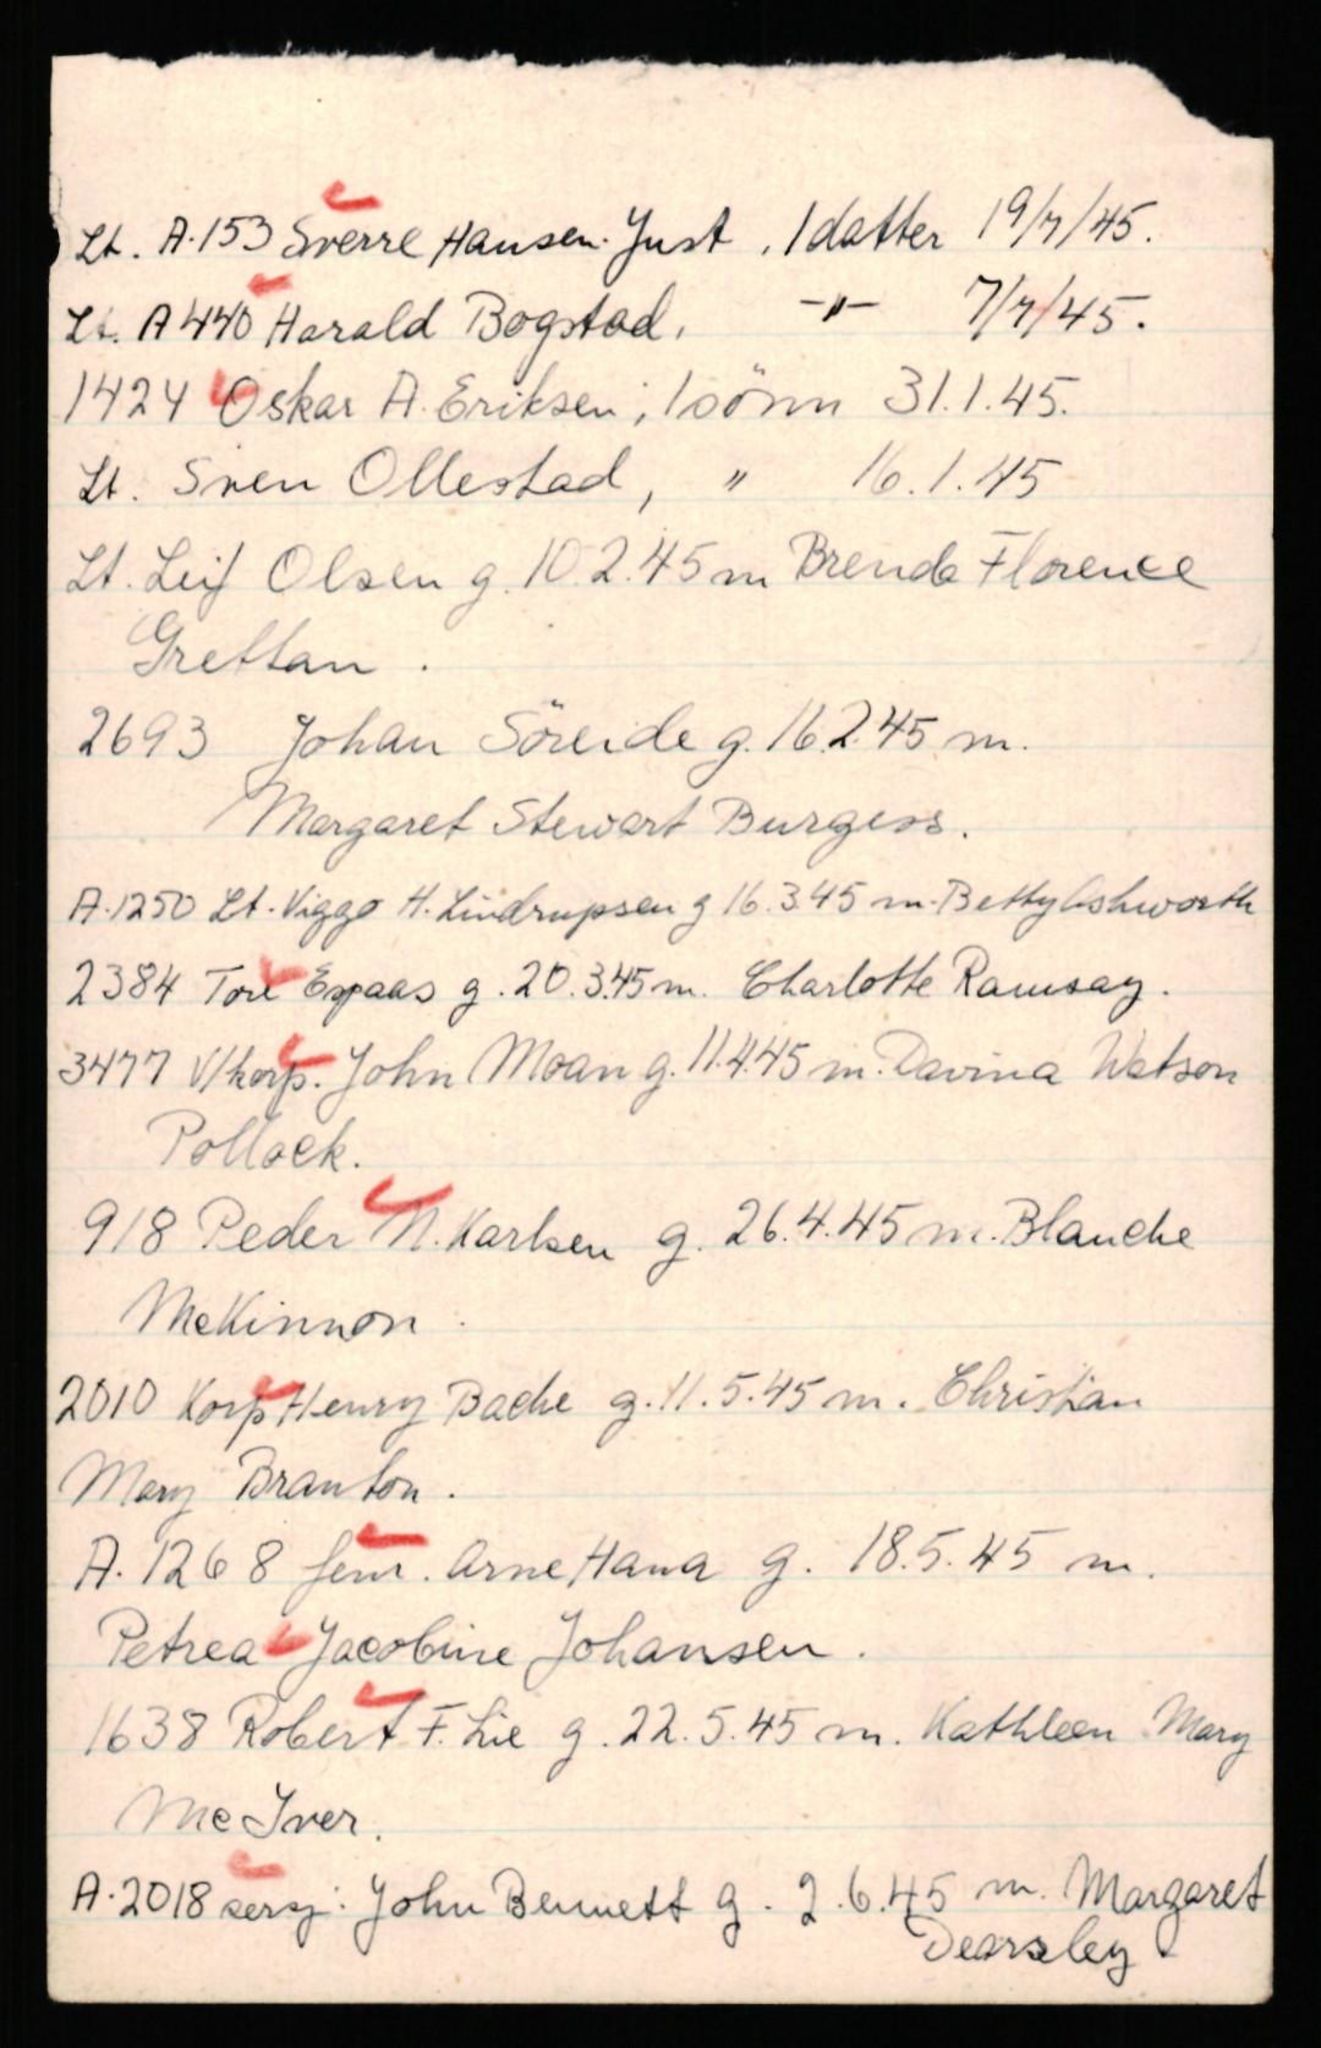 Lt. A.153 Sverre Hansen Just, 1 datter 19/7/45.
Lt. A 440 Harald Bogstad, -"- 7/7/45.
1424 Oskar A. Eriksen, 1 sönn 31.1.45.
Lt. Sven Ollestad, " 16.1.45
Lt. Leif Olsen g. 10.2.45 m Brenda Florence
Grettan.
2693 Johan Söreide g. 16.2.45 m.
Margaret Stewart Burgess.
A.1250 Lt. Viggo H. Lindrupsen g 16.3.45 m. Betty Ashworth
2384 Tore Espaas g. 20.3.45 m. Charlotte Ramsay.
3477 V/korp. John Moan g. 11.4.45 m. Davina Watson
Pollock.
918 Peder N. Karlsen g. 26.4.45 m. Blanche
McKinnon.
2010 Korp Henry Bache g. 11.5.45 m. Christian
Mary Branton.
A. 1268 fenr. Arne Hana g. 18.5.45 m.
Petrea Jacobine Johansen.
1638 Robert F. Lie g. 22.5.45 m. Kathleen Mary
Mc Iver.
A.2018 sersj. John Bennett g. 2.6.45 m. Margaret
Dearsley